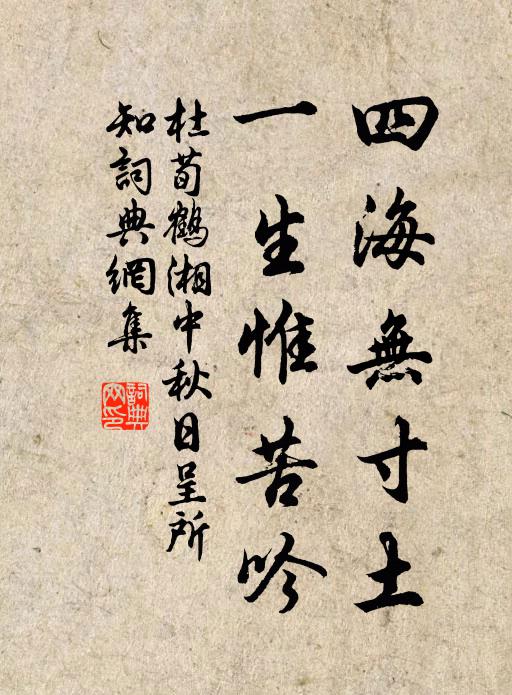 四海無寸土
一生惟苦吟
杜荀鶴湘中秋日呈所
知詞典網集
詞典
网印